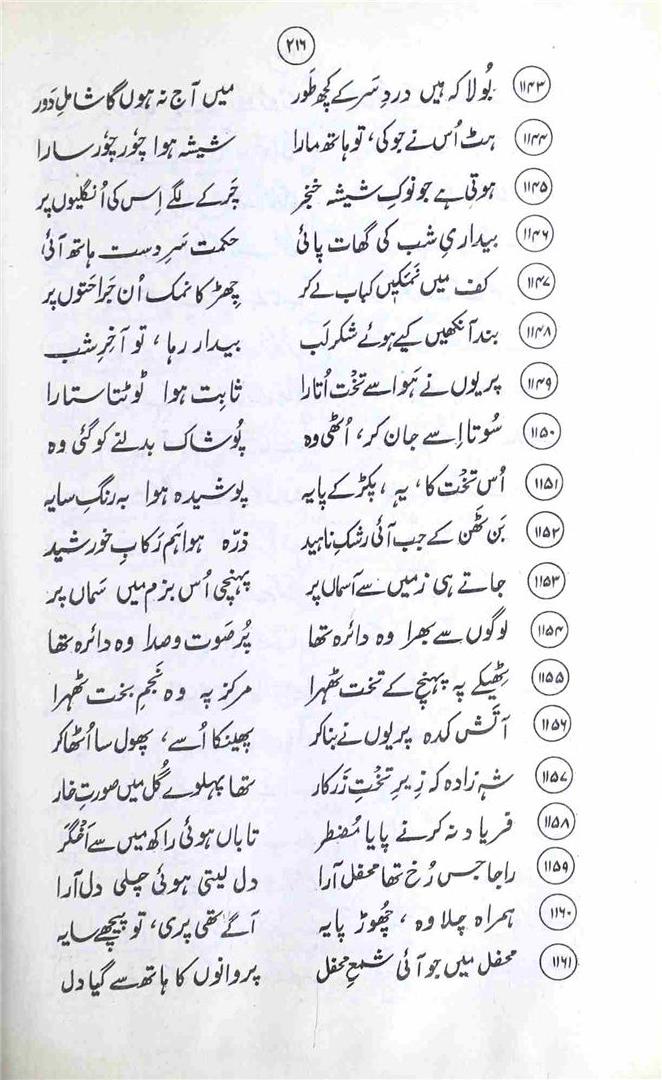 ۲۱۶
۱۱۴۳ بُولا کہ ہیں دردِ سَر کے کچھ طَور میں آج نہ ہوں گا شاملِ دَور
۱۱۴۴ ہٹ اُس نے جو کی، تو ہاتھ مارا شیشہ ہوا چوٗر چوٗر سارا
۱۱۴۵ ہوتی ہے جو نوکِ شیشہ خنجر چَرکے لگے اِس کی اُنگلیوں پر
۱۱۴۶ بیداریِ شب کی گھات پائی حکمت سَرِ دست ہاتھ آئی
۱۱۴۷ کف میں نَمَکیں کباب لے کر چھڑکا نمک اُن جَراحتوں پر
۱۱۴۸ بند آنکھیں کیے ہوئے شکر لَب بیدار رہا، تو آخِرِ شب
۱۱۴۹ پریوں نے ہَوا سے تخْت اُتارا ثابِت ہوا ٹوٹتا ستارا
۱۱۵۰ سُوتا اِسے جان کر، اُٹھی وہ پُوشاک بدلنے کو گئی وہ
۱۱۵۱ اُس تخْت کا، یہ، پکڑ کے پایہ پوشیدہ ہوا بہ رنگِ سایہ
۱۱۵۲ بَن ٹَھن کے جب آئی رشکِ ناہید ذرّہ ہوا ہَم رَکابِ خورشید
۱۱۵۳ جاتے ہی زمیں سے آسماں پر پہنچی اُس بزم میں سَماں پر
۱۱۵۴ لوگوں سے بھرا وہ دائرہ تھا پُر صَوت و صدا وہ دائرہ تھا
۱۱۵۵ ٹِھیکے پہ پہنچ کے تخت ٹھہرا مرکز پہ وہ نَجمِ بخت ٹھہرا
۱۱۵۶ آتَش کدہ پریوں نے بنا کر پھینکا اُسے، پھول سا اُٹھا کر
۱۱۵۷ شہ زادہ کہ زیرِ تخْتِ زَرکار تھا پہلوے گُل میں صورتِ خار
۱۱۵۸ فریاد نہ کرنے پایا مُضطر تاباں ہوئی راکھ میں سے اَخْگر
۱۱۵۹ راجا جس رُخ تھا محفل آرا دل لیتی ہوئی چلی دل آرا
۱۱۶۰ ہمراہ چلا وہ، چُھوڑ پایہ آگے تھی پری، تو پیچھے سایہ
۱۱۶۱ محفل میں جو آئی شمعِ محفل پروانوں کا ہاتھ سے گیا دل